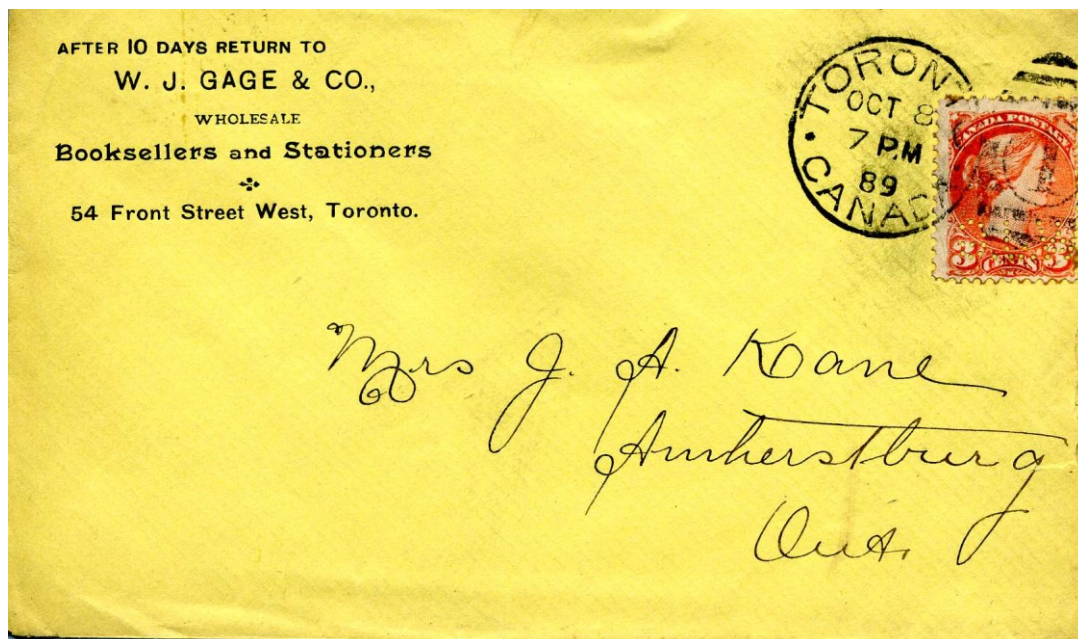 AFTER 10 DAYS RETURN TO
W. J. GAGE & CO.,
WHOLESALE
Booksellers and Stationers
54 Front Street West, Toronto.
TORON
OCT 8
7 PM
89
CANADA
CANADA POSTAGE
1
3 CENTS 3
Mrs J. A. Kane
Amherstburg
Ont.